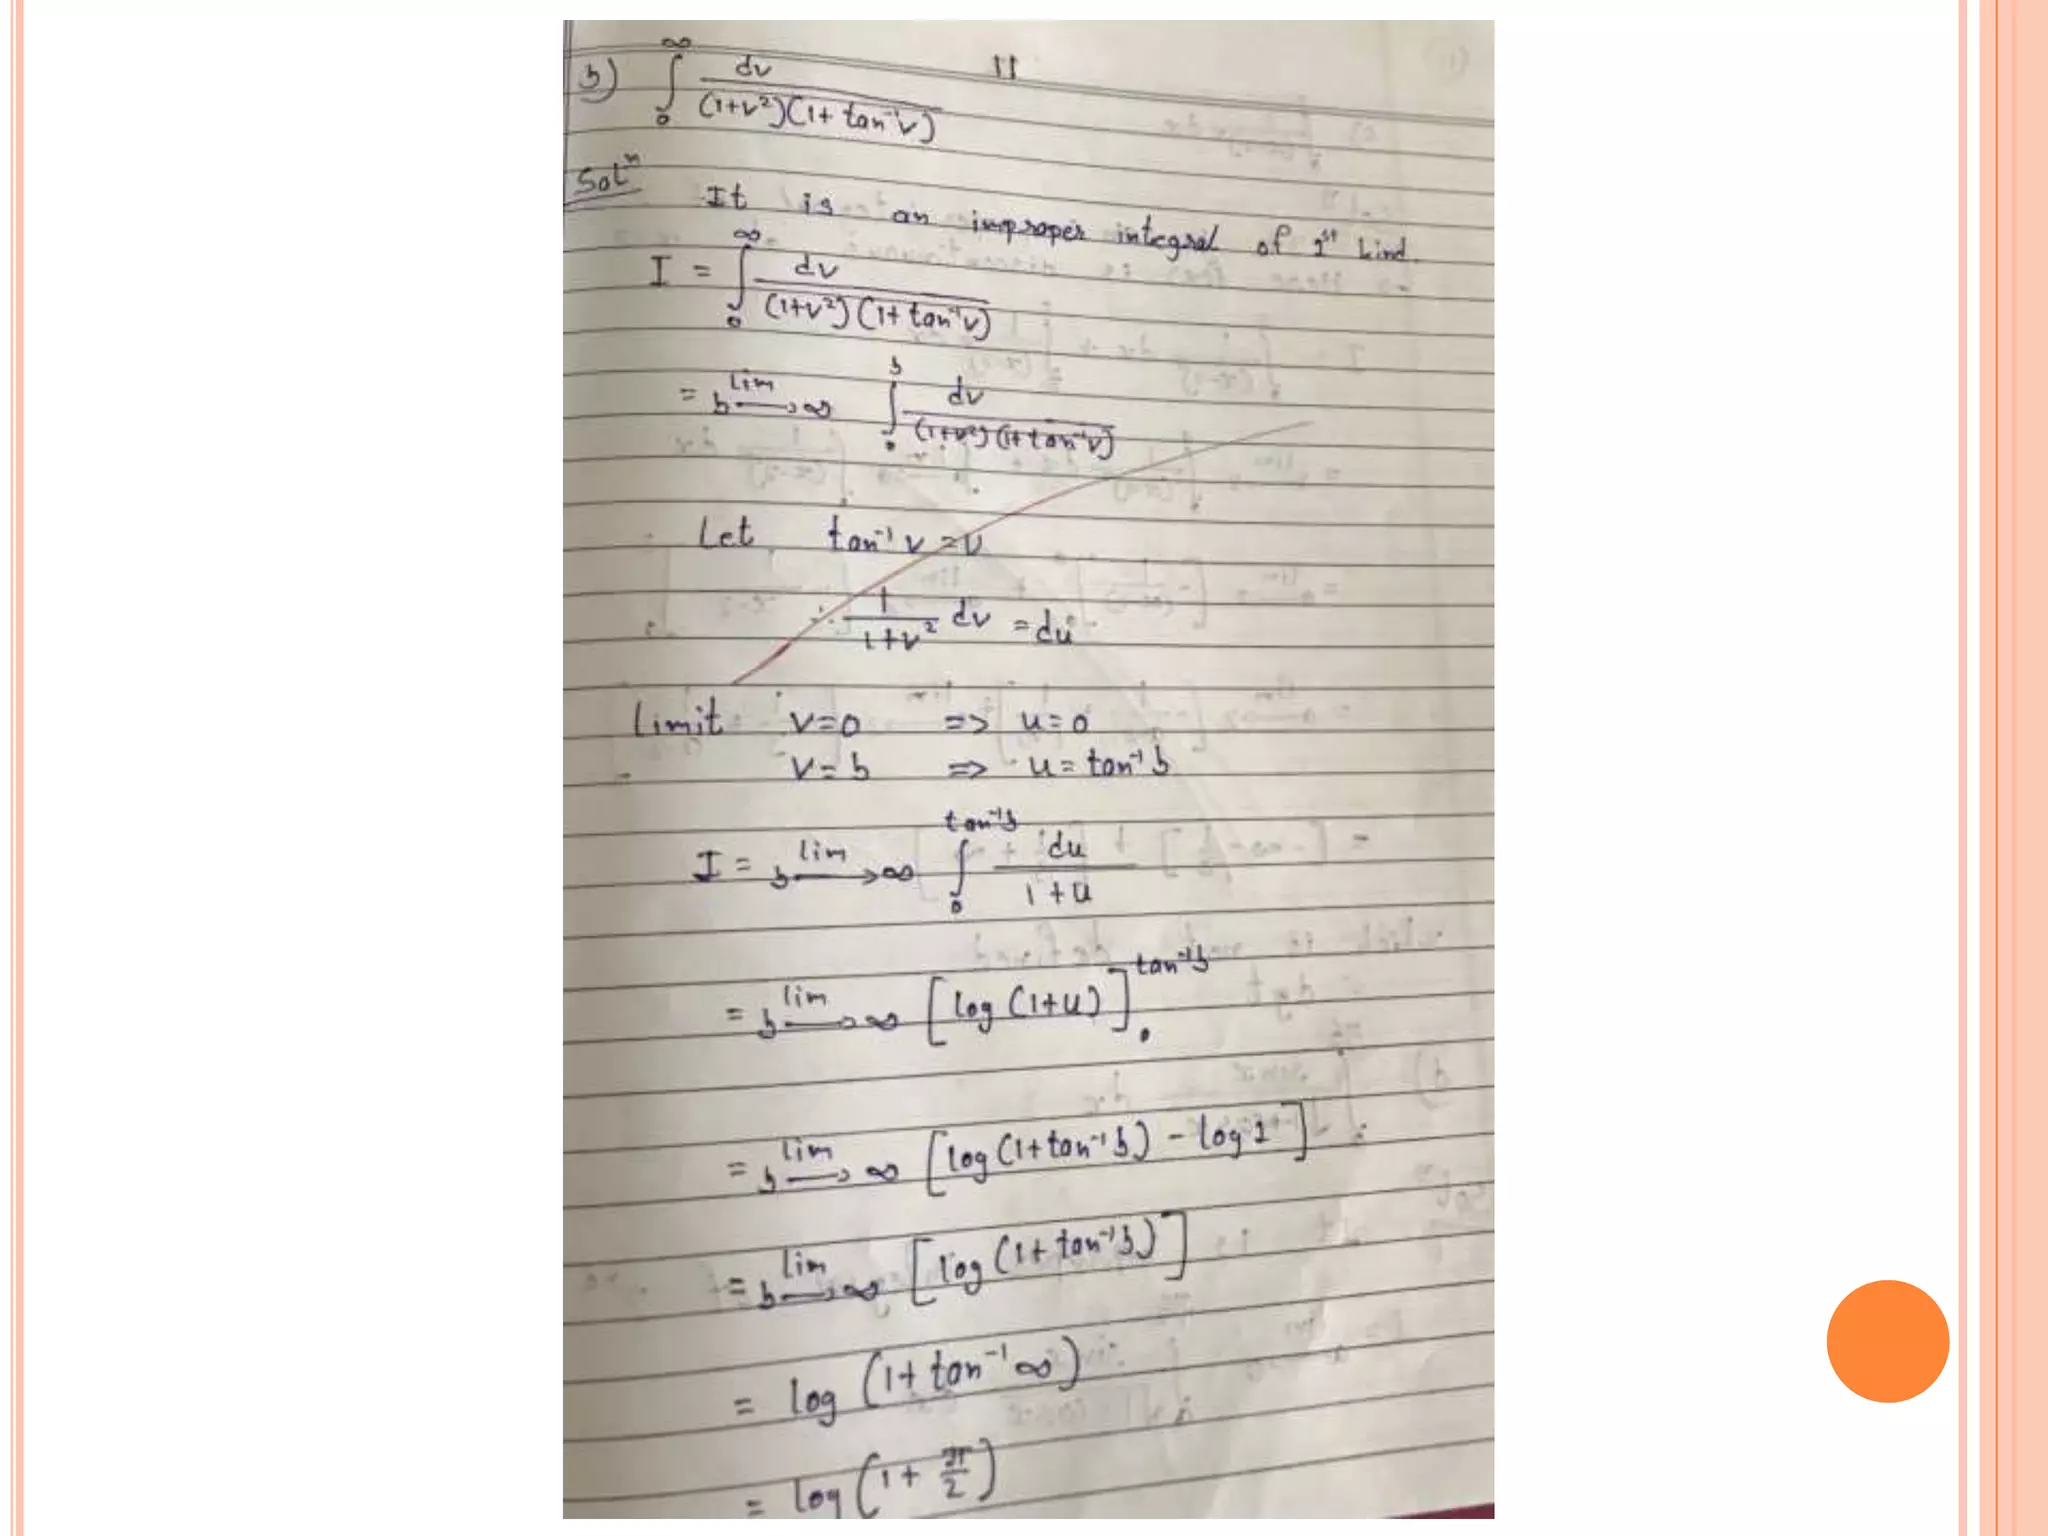 b) ∫₀^∞ dv / (1+v²)(1+tan⁻¹v)
11
Solⁿ It is an improper integral of 1st kind.
I = ∫₀^∞ dv / (1+v²)(1+tan⁻¹v)
= lim b→∞ ∫₀^b dv / (1+v²)(1+tan⁻¹v)
Let tan⁻¹ v = u
∴ 1/(1+v²) dv = du
Limit v=0 => u=0
v=b => u=tan⁻¹ b
I = lim b→∞ ∫₀^(tan⁻¹b) du / 1+u
= lim b→∞ [log (1+u)]₀^(tan⁻¹b)
= lim b→∞ [log (1+tan⁻¹ b) - log 1]
= lim b→∞ [log (1+tan⁻¹b)]
= log (1+tan⁻¹ ∞)
= log (1+ π/2)